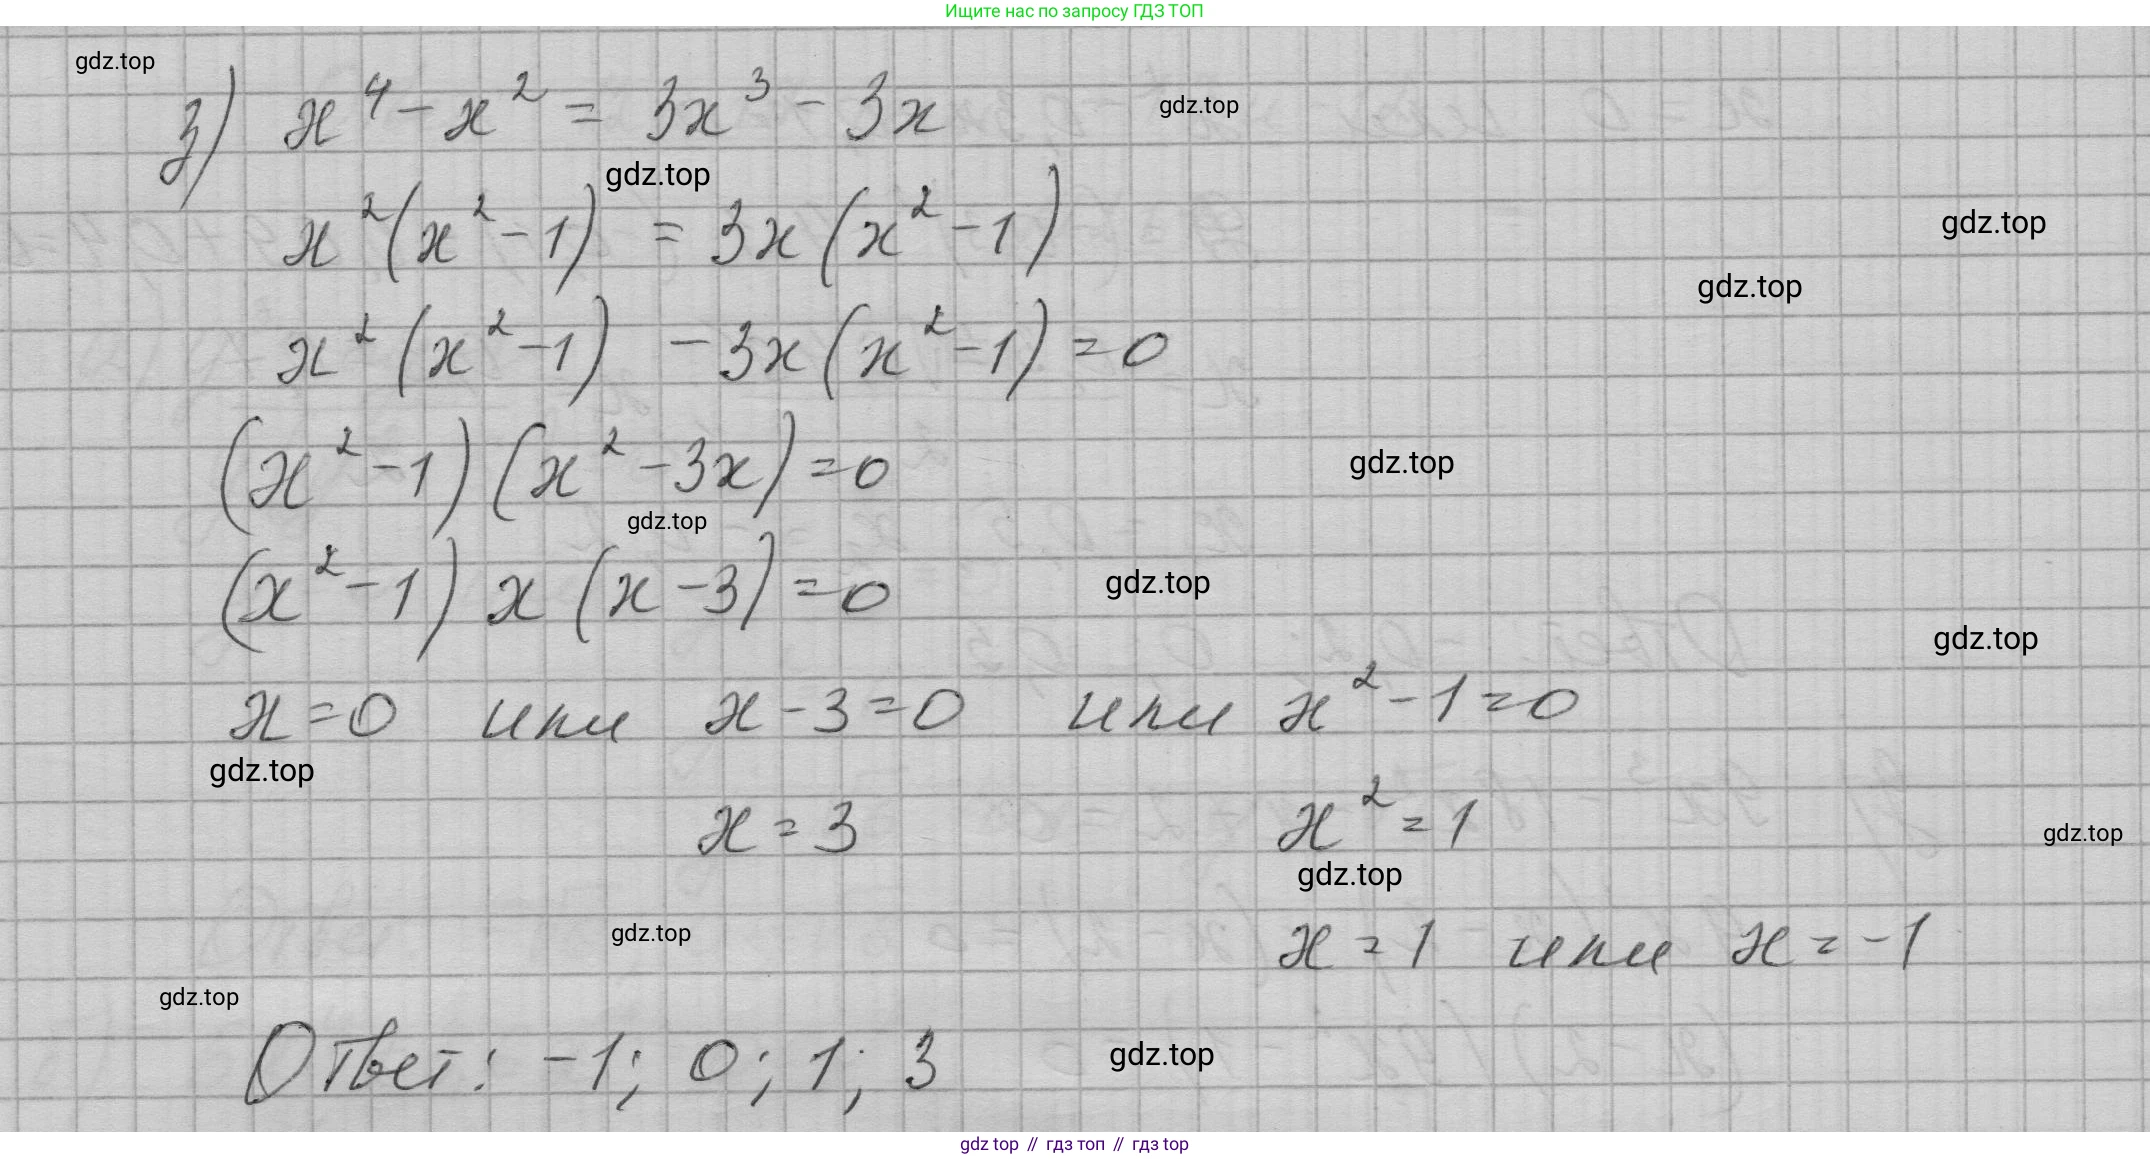 Ищите нас по запросу ГДЗ ТОП
gdz.top
з) x⁴ - x² = 3x³ - 3x
gdz.top
gdz.top
x²(x² - 1) = 3x(x² - 1)
gdz.top
gdz.top
x²(x² - 1) - 3x(x² - 1) = 0
(x² - 1)(x² - 3x) = 0
gdz.top
gdz.top
(x² - 1) x (x - 3) = 0
gdz.top
gdz.top
x = 0 или x - 3 = 0 или x² - 1 = 0
gdz.top
x = 3 x² = 1
gdz.top
gdz.top
gdz.top
x = 1 или x = -1
gdz.top
Ответ: -1; 0; 1; 3
gdz.top
gdz top // гдз топ // гдз top